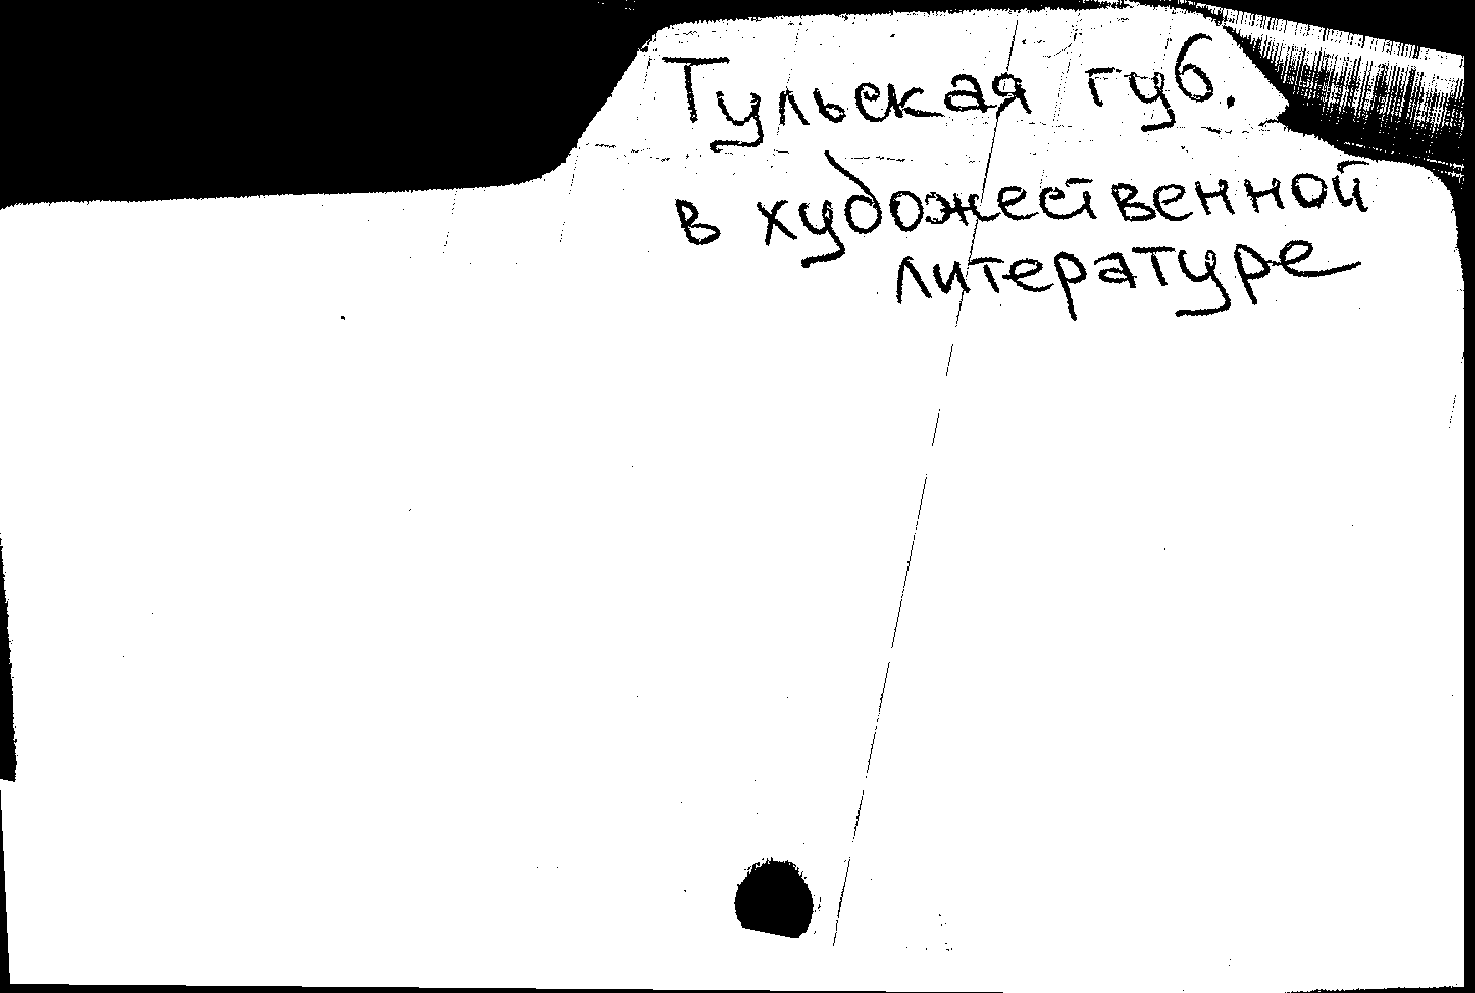 Тульская губ.
в художественной
литературе